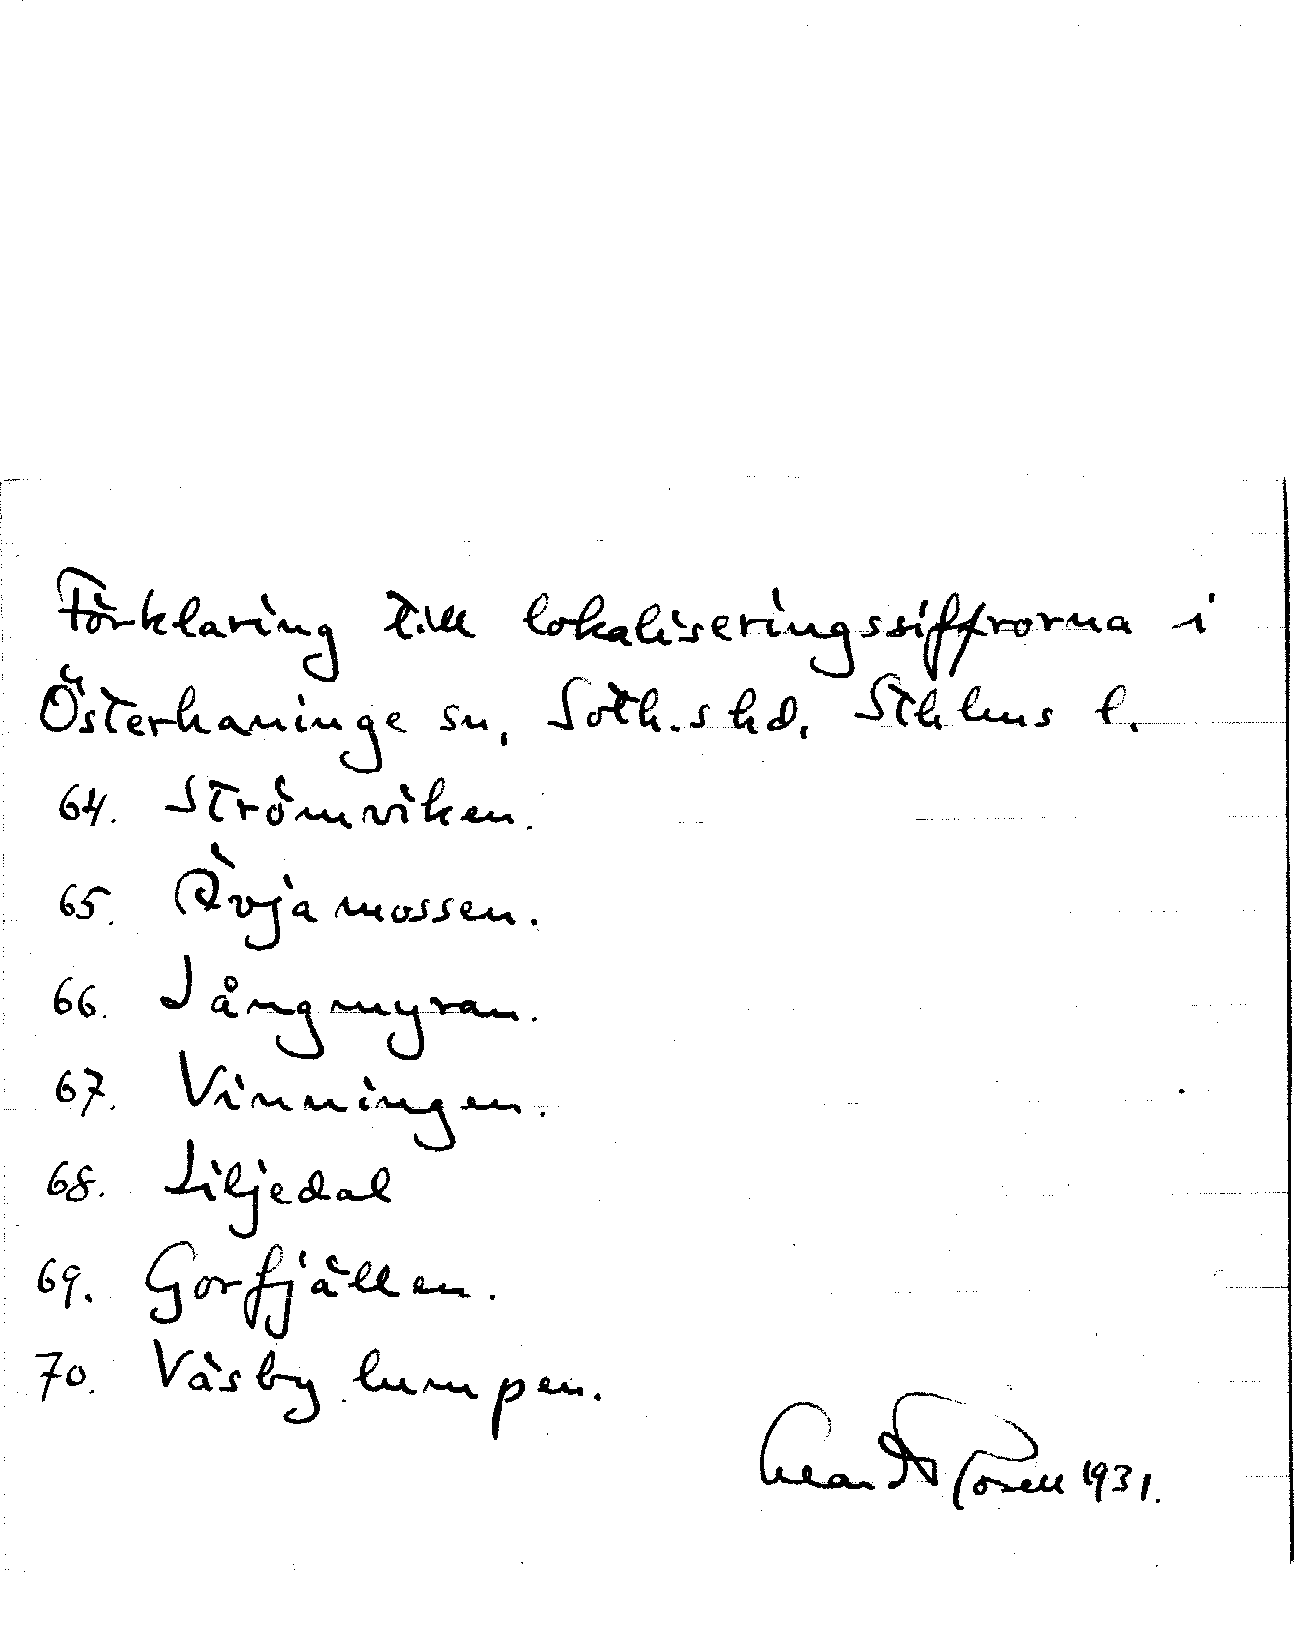 Förklaring till lokaliseringssiffrorna i
Österhaninge sn, Soth.s hd, Sthlms l.
64. Strömviken.
65. Ävjamossen.
66. Långmyran.
67. Vinningen.
68. Liljedal
69. Gorfjällen.
70. Väsby lumpen.
1931.